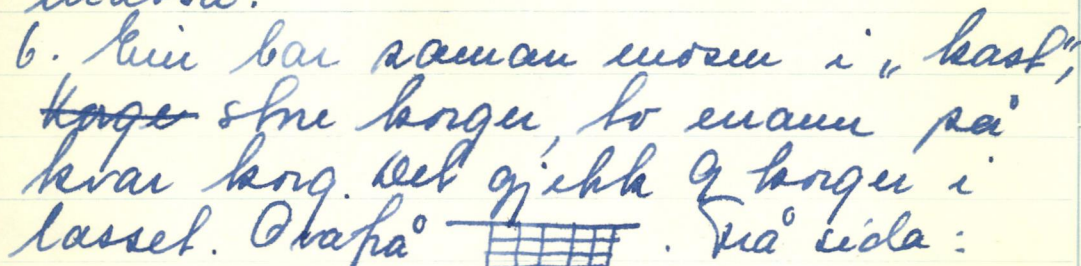 6. Ein bar saman mosen i „kast",
Korger store korger, to mann på
kvar korg. Det gjekk 9 korger i
lasset. Ovapå . Frå sida: